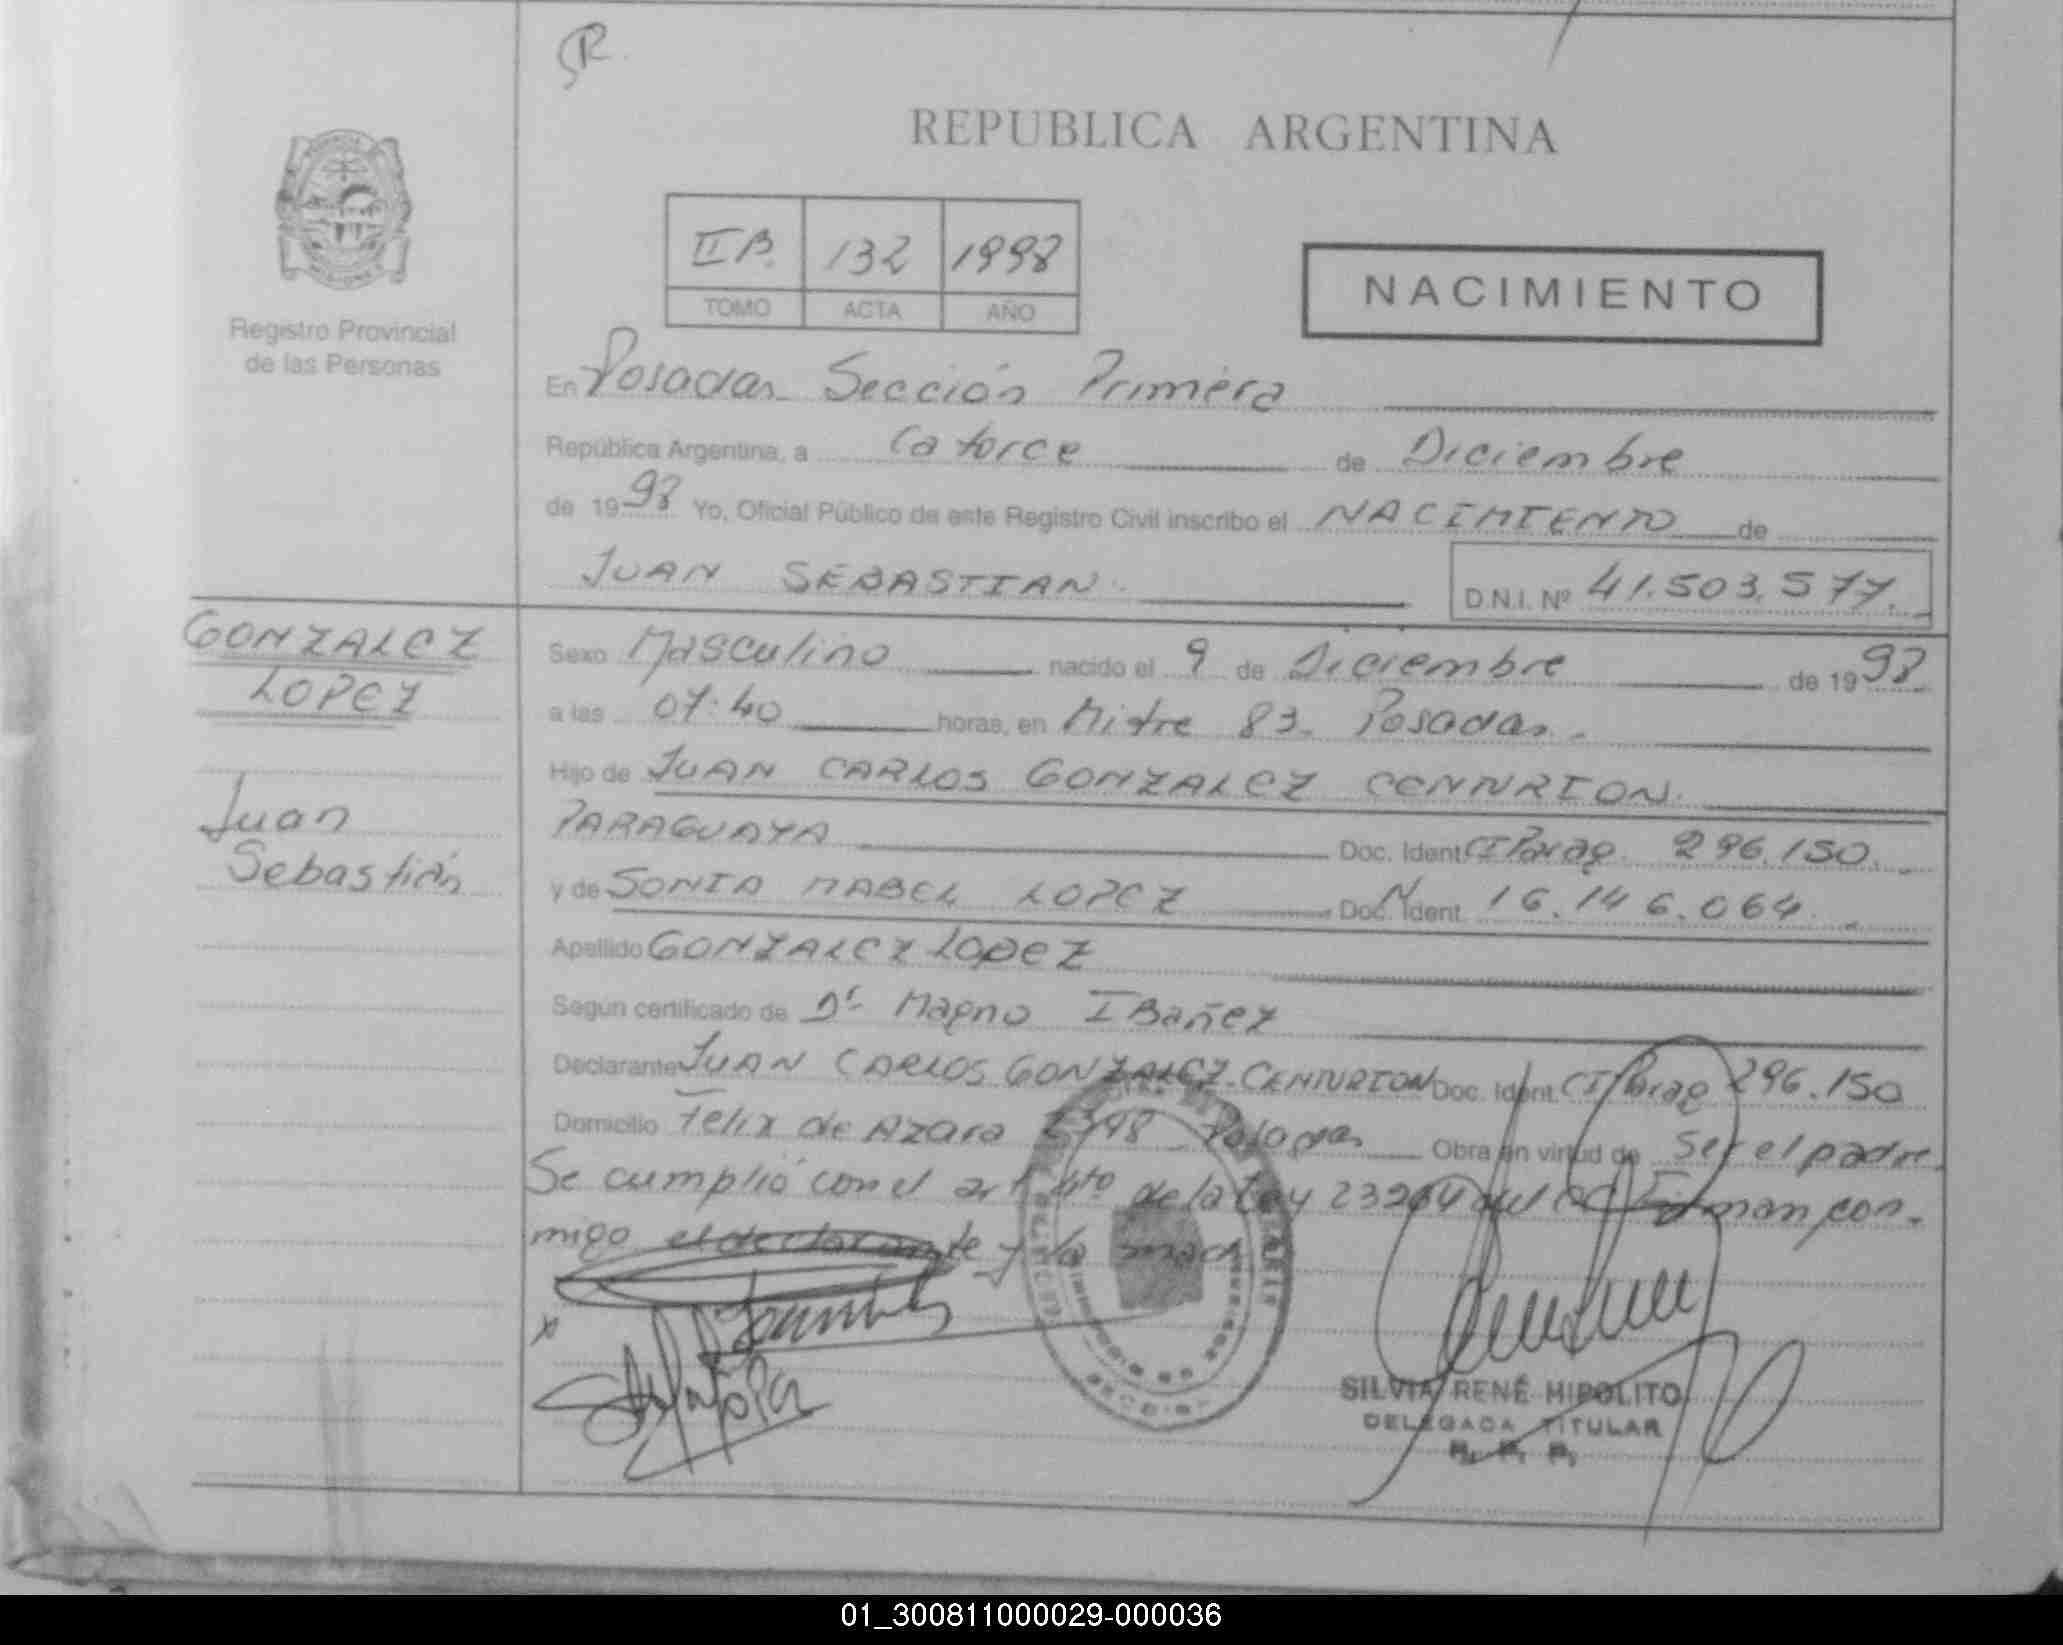 SR
REPUBLICA ARGENTINA
II B. 132 1998
TOMO ACTA AÑO
NACIMIENTO
Registro Provincial
de las Personas
En Posadas Sección Primera
República Argentina, a Catorce de Diciembre
de 1998 Yo, Oficial Público de este Registro Civil inscribo el NACIMIENTO de
JUAN SEBASTIAN D.N.I. Nº 41.503.577.
GONZALEZ
LOPEZ
Juan
Sebastián
Sexo Masculino nacido el 9 de Diciembre de 1998
a las 07:40 horas, en Mitre 83. Posadas.
Hijo de JUAN CARLOS GONZALEZ CENTURION.
PARAGUAYA Doc. Ident CI Parag. 296.150.
y de SONIA MABEL LOPEZ Doc. Ident. 16.146.064.
Apellido GONZALEZ LOPEZ
Segun certificado de Dr Magno IBañez
Declarante JUAN CARLOS GONZALEZ CENTURION Doc. Ident. CI Parag 296.150
Domicilio Felix de Azara Posadas Obra en virtud de Ser el padre.
Se cumplió con el art 4to de la Ley 23264 del CC Firman con-
migo el declarante y la madre
SILVIA RENÉ HIPOLITO
DELEGADA TITULAR
R. P. P.
01_300811000029-000036